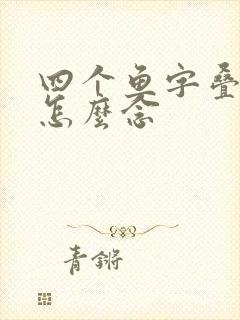 四个鱼字叠
怎麼念
青锵